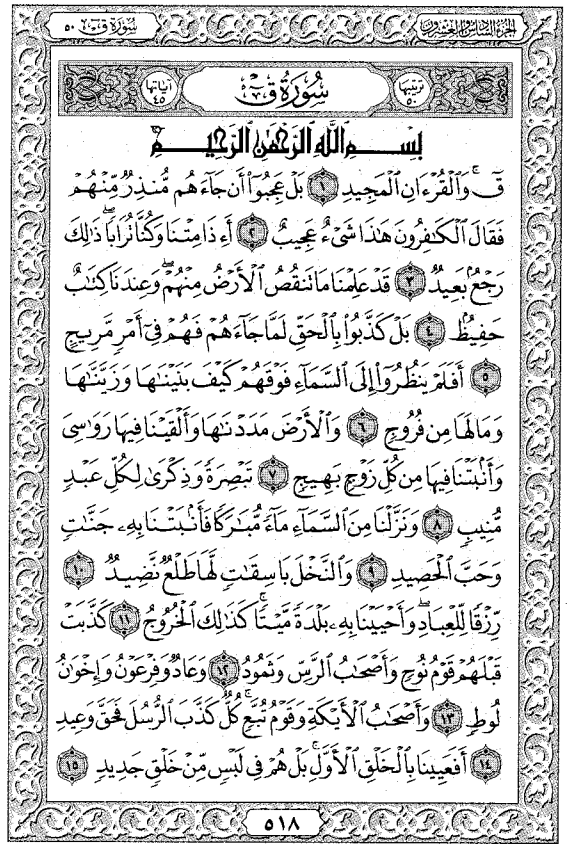 سُورَةُ قٓ ٥٠
الجزء السادس والعشرون
ترتيبها ٥٠
سُورَةُ قٓ
آياتها ٤٥
بِسْمِ اللَّهِ الرَّحْمَٰنِ الرَّحِيمِ
قٓۚ وَٱلْقُرْءَانِ ٱلْمَجِيدِ ١ بَلْ عَجِبُوٓا۟ أَن جَآءَهُم مُّنذِرٌ مِّنْهُمْ
فَقَالَ ٱلْكَٰفِرُونَ هَٰذَا شَىْءٌ عَجِيبٌ ٢ أَءِذَا مِتْنَا وَكُنَّا تُرَابًاۖ ذَٰلِكَ
رَجْعٌۢ بَعِيدٌ ٣ قَدْ عَلِمْنَا مَا تَنقُصُ ٱلْأَرْضُ مِنْهُمْۖ وَعِندَنَا كِتَٰبٌ
حَفِيظٌۢ ٤ بَلْ كَذَّبُوا۟ بِٱلْحَقِّ لَمَّا جَآءَهُمْ فَهُمْ فِىٓ أَمْرٍ مَّرِيجٍ
٥ أَفَلَمْ يَنظُرُوٓا۟ إِلَى ٱلسَّمَآءِ فَوْقَهُمْ كَيْفَ بَنَيْنَٰهَا وَزَيَّنَّٰهَا
وَمَا لَهَا مِن فُرُوجٍ ٦ وَٱلْأَرْضَ مَدَدْنَٰهَا وَأَلْقَيْنَا فِيهَا رَوَٰسِىَ
وَأَنۢبَتْنَا فِيهَا مِن كُلِّ زَوْجٍۭ بَهِيجٍ ٧ تَبْصِرَةً وَذِكْرَىٰ لِكُلِّ عَبْدٍ
مُّنِيبٍ ٨ وَنَزَّلْنَا مِنَ ٱلسَّمَآءِ مَآءً مُّبَٰرَكًا فَأَنۢبَتْنَا بِهِۦ جَنَّٰتٍ
وَحَبَّ ٱلْحَصِيدِ ٩ وَٱلنَّخْلَ بَاسِقَٰتٍ لَّهَا طَلْعٌ نَّضِيدٌ ١٠
رِّزْقًا لِّلْعِبَادِۖ وَأَحْيَيْنَا بِهِۦ بَلْدَةً مَّيْتًاۚ كَذَٰلِكَ ٱلْخُرُوجُ ١١ كَذَّبَتْ
قَبْلَهُمْ قَوْمُ نُوحٍ وَأَصْحَٰبُ ٱلرَّسِّ وَثَمُودُ ١٢ وَعَادٌ وَفِرْعَوْنُ وَإِخْوَٰنُ
لُوطٍ ١٣ وَأَصْحَٰبُ ٱلْأَيْكَةِ وَقَوْمُ تُبَّعٍۚ كُلٌّ كَذَّبَ ٱلرُّسُلَ فَحَقَّ وَعِيدِ
١٤ أَفَعَيِينَا بِٱلْخَلْقِ ٱلْأَوَّلِۚ بَلْ هُمْ فِى لَبْسٍ مِّنْ خَلْقٍ جَدِيدٍ ١٥
٥١٨